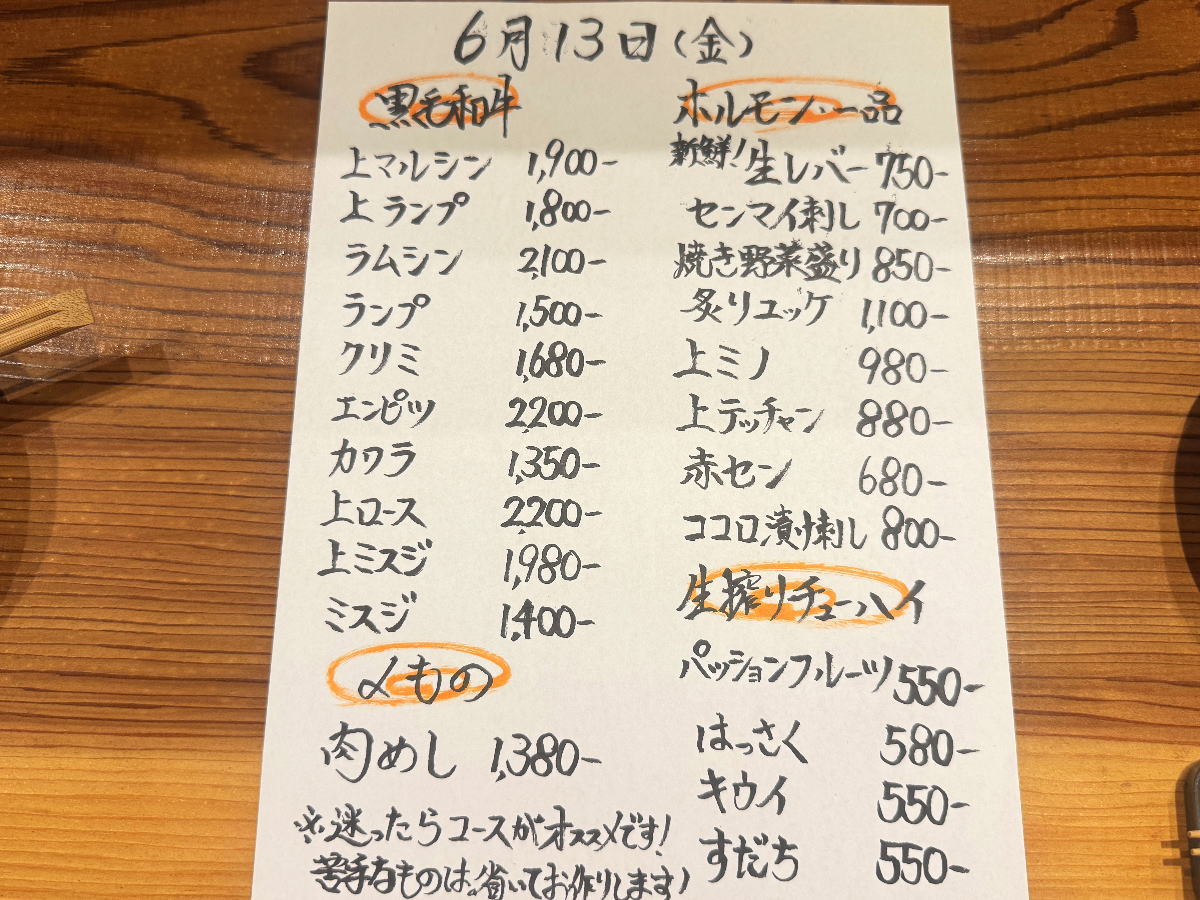 6月13日(金)
黒毛和牛
上マルシン 1,900-
上ランプ 1,800-
ラムシン 2,100-
ランプ 1,500-
クリミ 1,680-
エンピツ 2,200-
カワラ 1,350-
上ロース 2,200-
上ミスジ 1,980-
ミスジ 1,400-
〆もの
肉めし 1,380-
※迷ったらコースがオススメです!
苦手なものは省いてお作りします!
ホルモン・一品
新鮮!生レバー 750-
センマイ刺し 700-
焼き野菜盛り 850-
炙りユッケ 1,100-
上ミノ 980-
上テッチャン 880-
赤セン 680-
ココロ漬け刺し 800-
生搾りチューハイ
パッションフルーツ 550-
はっさく 580-
キウイ 550-
すだち 550-